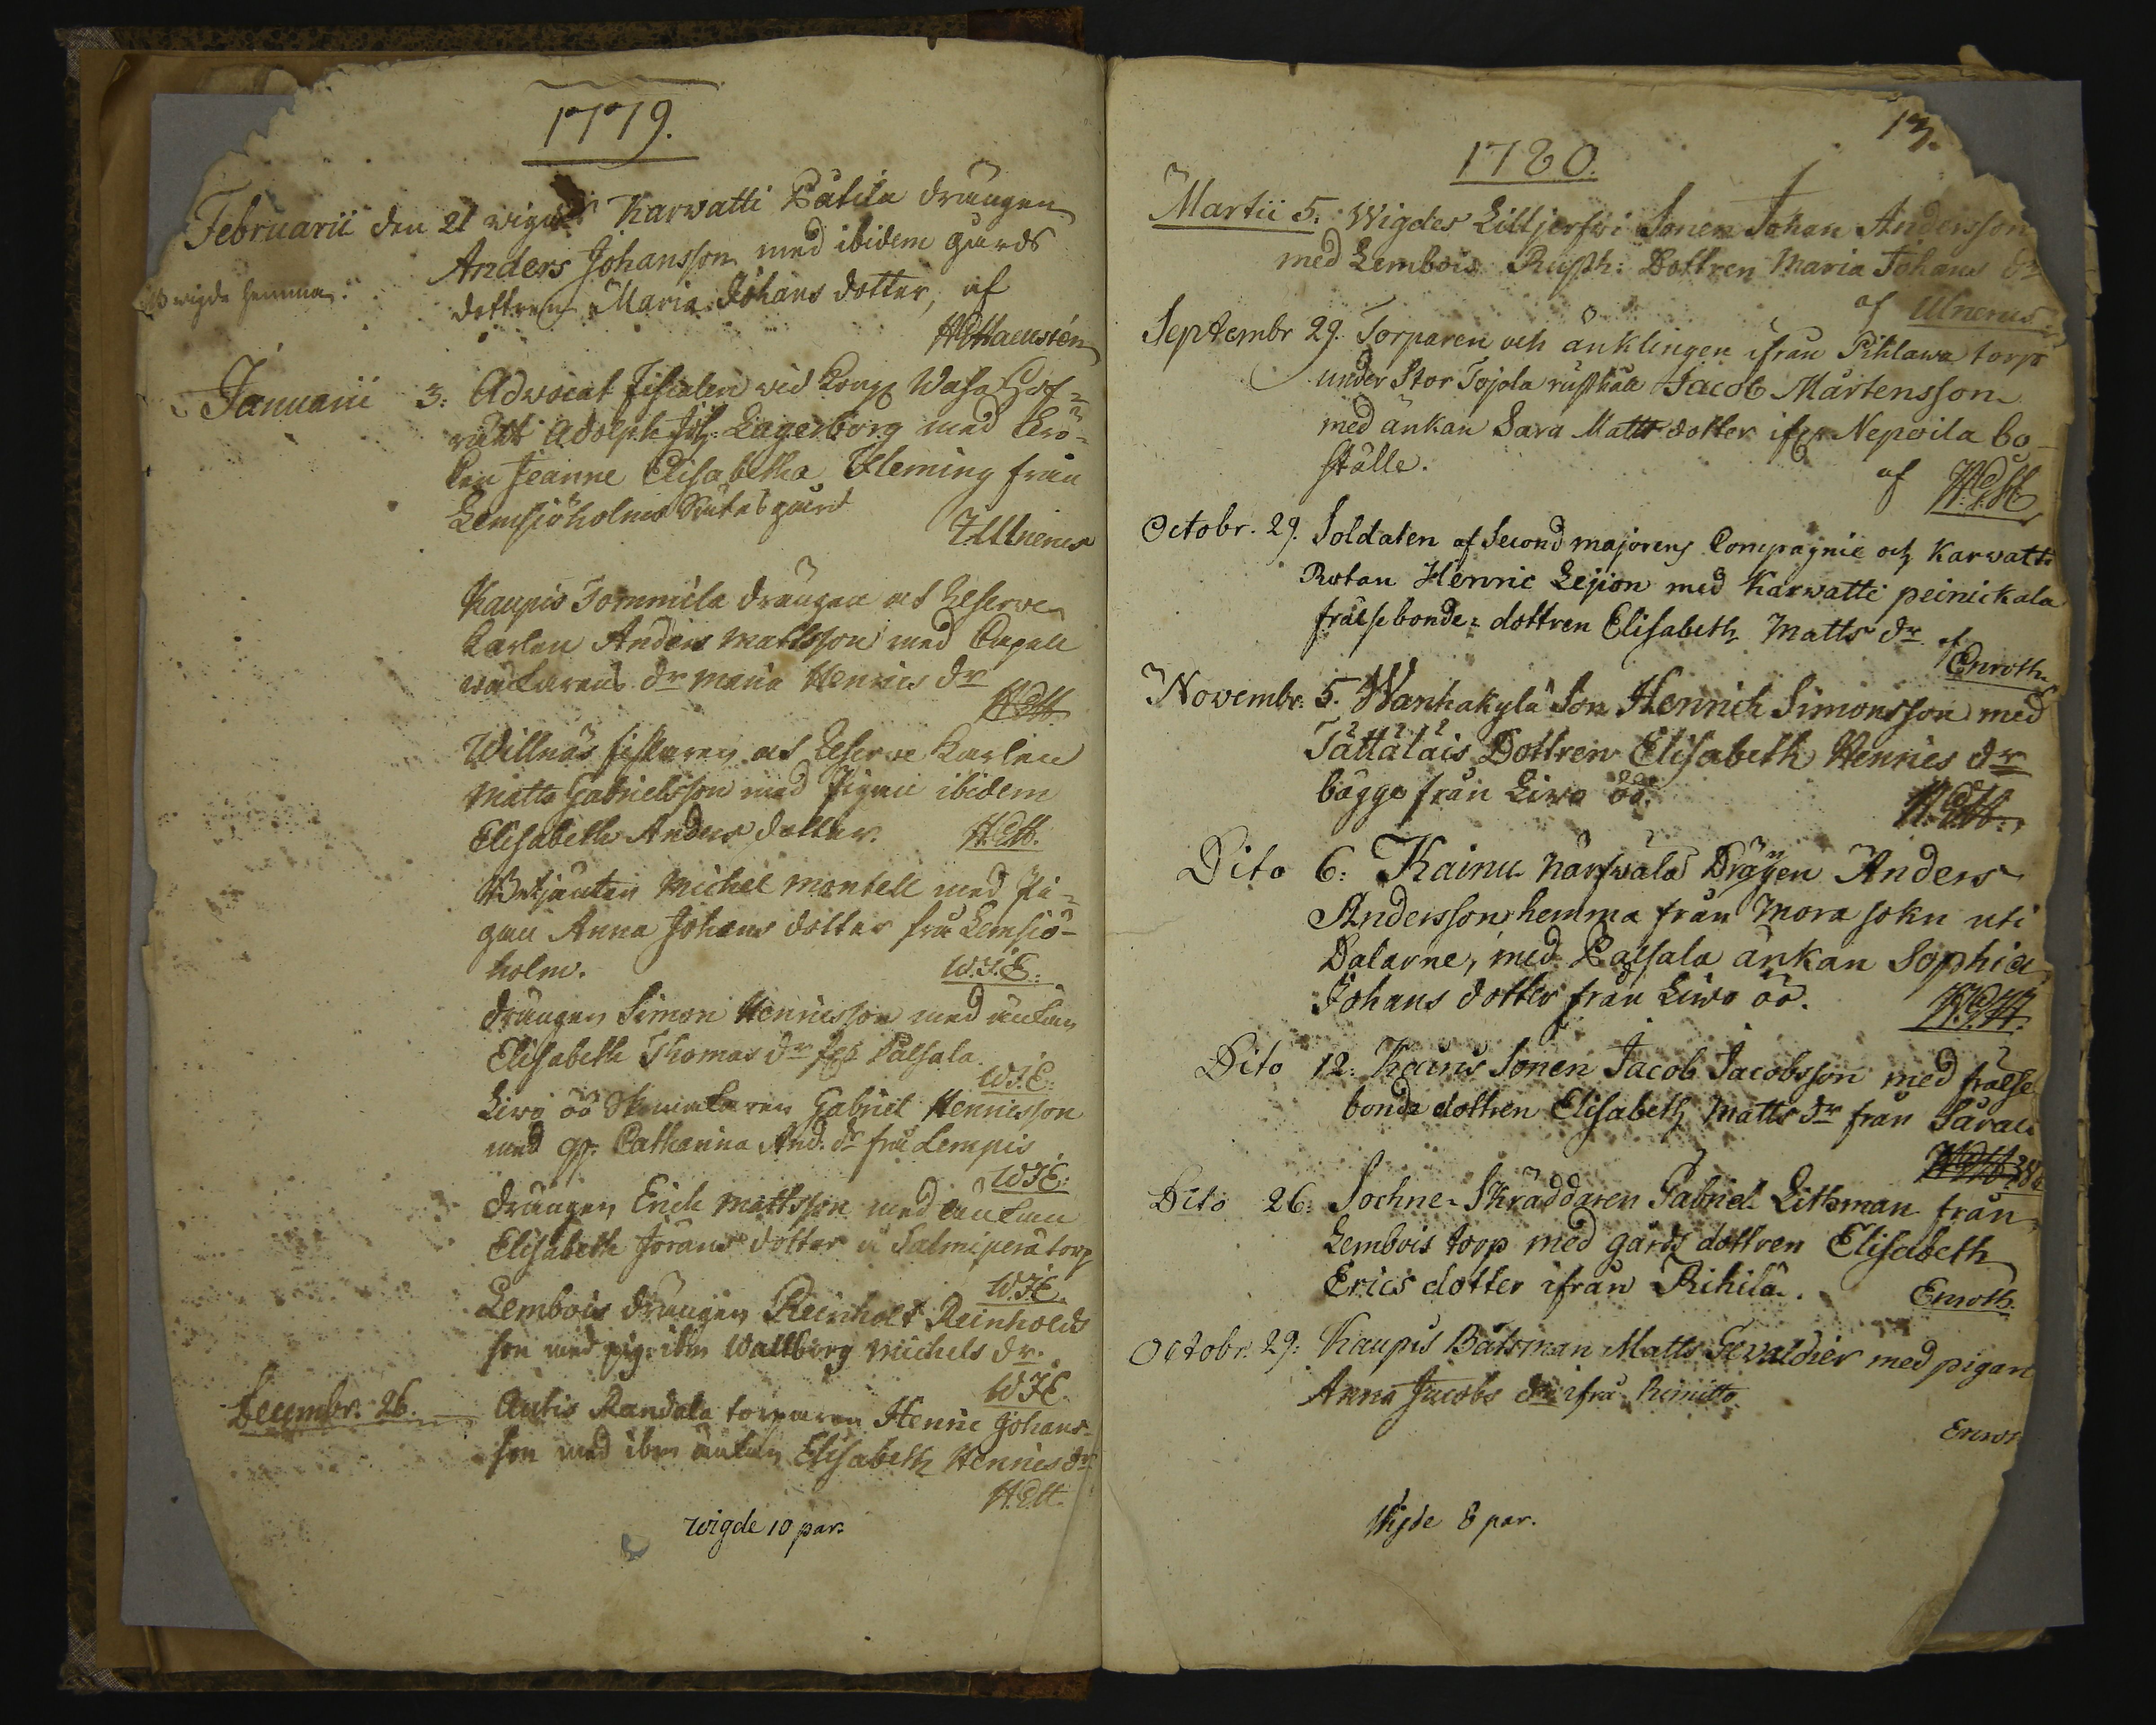 1779.
Februarii den 21 wigdes Karwatti Pätilä drängen
Anders Johansson med ibidem gårds
wigde hemma.
dottren Maria Johans dotter, af
Januarii 3: Advocat Fiscalen vid Kongl Wasa Hof-
rätt Adolph Joh: Lagerborg med Frö-
ken Jeanne Elisabetha Fleming från
Lemsiöholms Sätesgård
Ullnerus
Kaupis Tommila drängen och Reserve
Karlen Anders Mattsson med Capell
wäktarens dr Maria Henrics dr
W.E.H.
Willnäs fiskaren och Reserve Karlen
Matts Gabrielsson med Pigan ibidem
Elisabeth Anders dotter. W.E.H.
Betjänten Michel Montell med Pi-
gan Anna Johans dotter frå Lemsiö-
holm. W.I.E:
drängen Simon Henricsson med änkan
Elisabeth Thomas dr Palsala.
W.I.E:
Livo öö Gabriel Henricsson
med Catharina And. dr frå Lempis
W.I.E:
drängen Erich Mattsson med änkan
Elisabeth Jörans dotter Salmiperä torp
W.I.E.
Lembois drängen Reinholt Reinholds
son med pig: ibm Wallborg Michels dr.
W.I.E.
Decembr. 26. Antis Randala torparen Henric Johans-
son med ibm änkan Elisabeth Henrics dr
W.E.H.
Wigde 10 par.
13.
1780.
Martii 5. Wigdes Liltjerfwi Sonen Johan Andersson
med Lembois Rusth: Dottren Maria Johans dr
af Ulnerus
Septembr 29. Torparen och änklingen ifrån Pihlawa torp
under Stor Tojola rusthåll Jacob Mårtensson
med änkan Sara Matts dotter ifrå Nepoila bo-
ställe. af W.E.H.
Octobr. 29. Soldaten af Second majorens Compagnie och Karvatti
Rotan Henric Lejion med Karwatti peinickala
frälse bonde-dottren Elisabeth Matts dr af
Enroth.
Novembr. 5. Wanhakylä Son Henrich Simonsson med
Tättäläis Dottren Elisabeth Henrics dr
bägge från Livo öö. W.E.H.
Dito 6: Kainu närfwala Drängen Anders
Andersson hemma från Mora sokn uti
Dalarne, med Palsala änkan Sophia
Johans dotter från Livo öö. W.E.H.
Dito 12: Kainus Sonen Jacob Jacobsson med frälse
bonde dottren Elisabeth Matts dr från Särau
Dito 26: Sochne-Skräddaren Gabriel Lithman från
Lembois torp med gårds dottren Elisabeth
Erics dotter ifrån Rihilä. Enroth.
Octobr. 29: Kaupis Båtsman Matts Gevaldier med pigan
Anna Jacobs dr ifrå Rimitto
Enroth
Wigde 8 par.